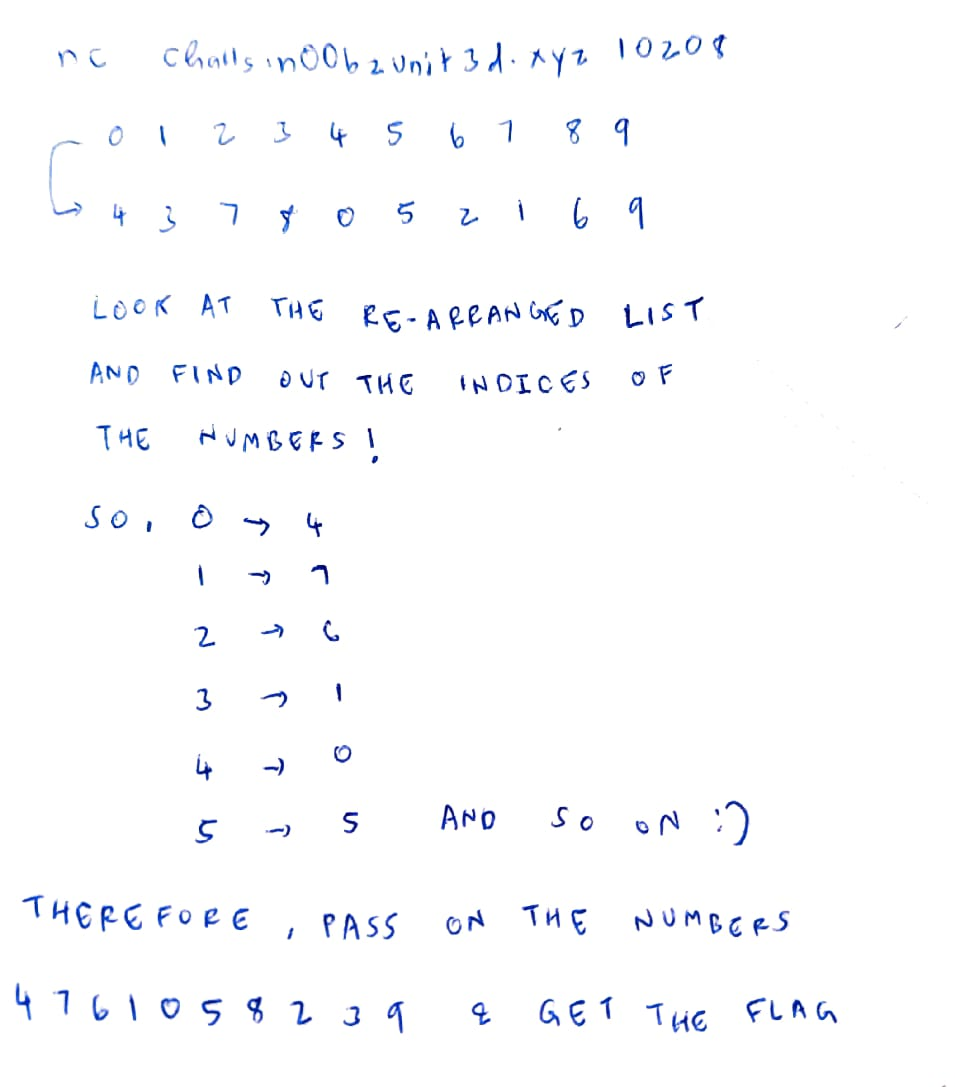 nc challs.n00bzunit3d.xyz 10208
0 1 2 3 4 5 6 7 8 9
4 3 7 8 0 5 2 1 6 9
LOOK AT THE RE-ARRANGED LIST
AND FIND OUT THE INDICES OF
THE NUMBERS!
SO, 0 → 4
1 → 7
2 → 6
3 → 1
4 → 0
5 → 5 AND SO ON :)
THEREFORE, PASS ON THE NUMBERS
4 7 6 1 0 5 8 2 3 9 & GET THE FLAG